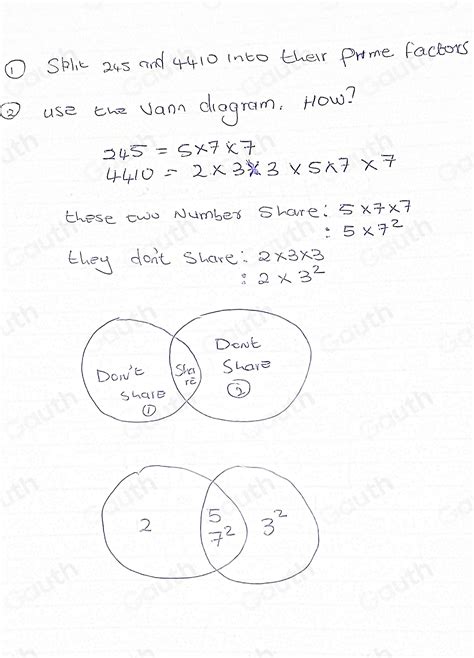 ① Split 245 and 4410 into their Prime factors
② use the Vann diagram. How?
245 = 5×7×7
4410 = 2×3×3×5×7×7
these two Number Share: 5×7×7
: 5×7²
they don't Share: 2×3×3
: 2×3²
Don't Share ①
Sha re
Dont Share ②
2
5 7²
3²